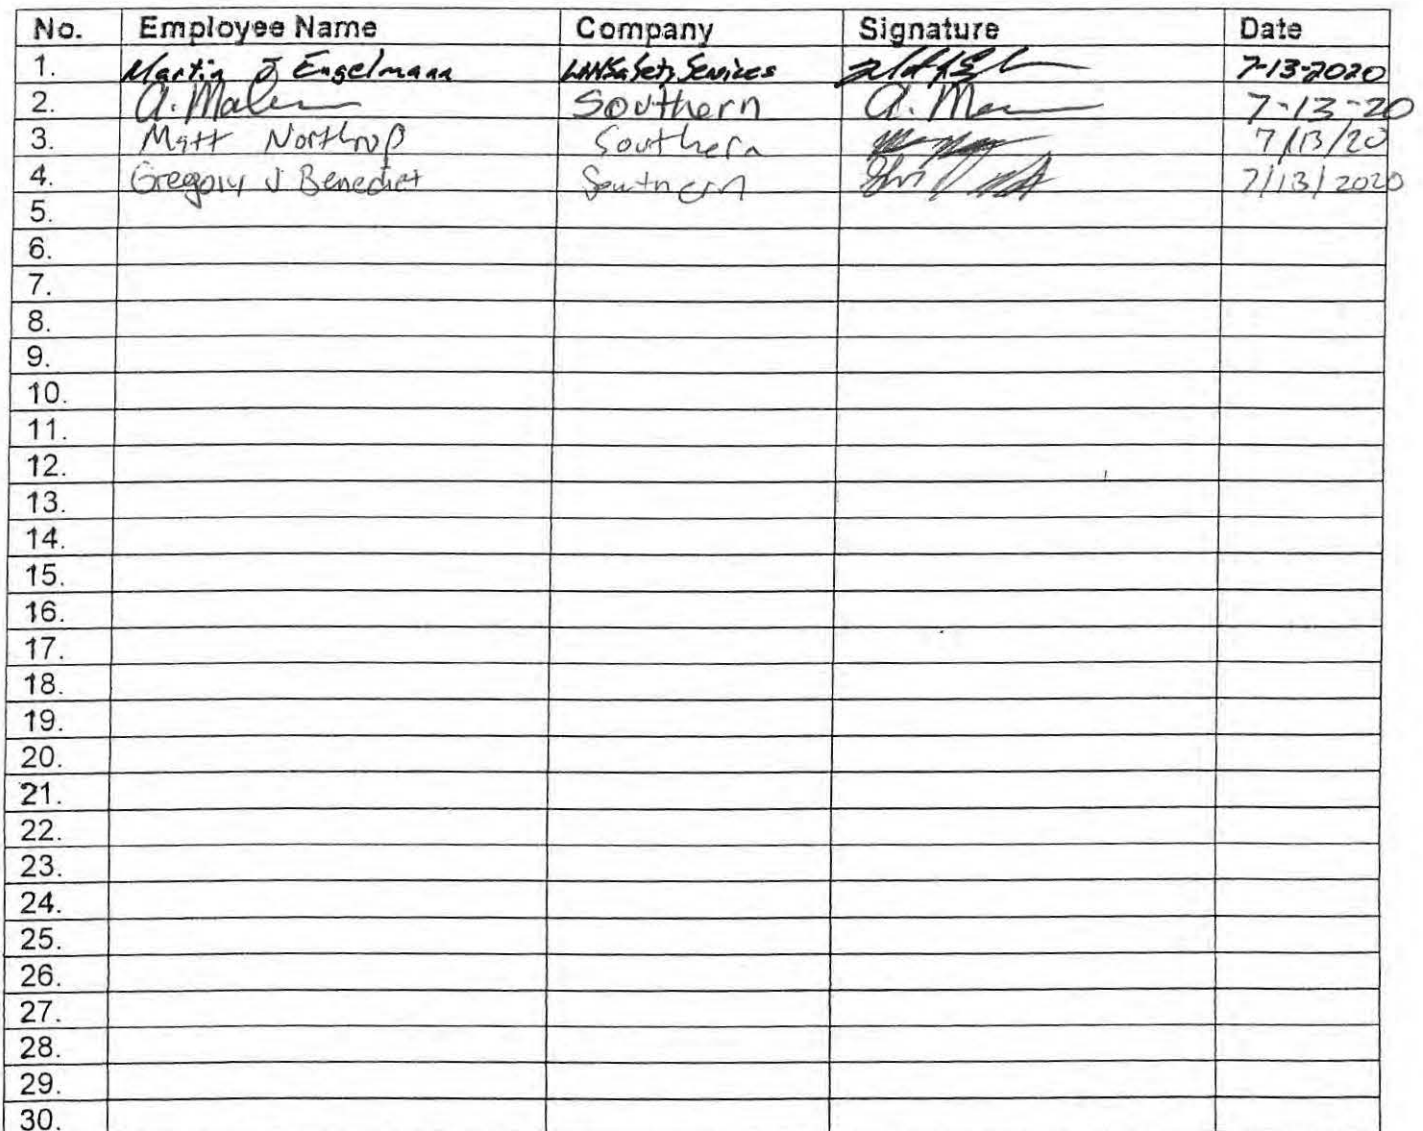 No. Employee Name Company Signature Date
1. Martin J Engelmann Services 7-13-2020
2. A. Southern A. 7-13-20
3. Matt Northrop Southern 7/13/20
4. Gregory J Benedict Southern 7/13/2020
5.
6.
7.
8.
9.
10.
11.
12.
13.
14.
15.
16.
17.
18.
19.
20.
21.
22.
23.
24.
25.
26.
27.
28.
29.
30.